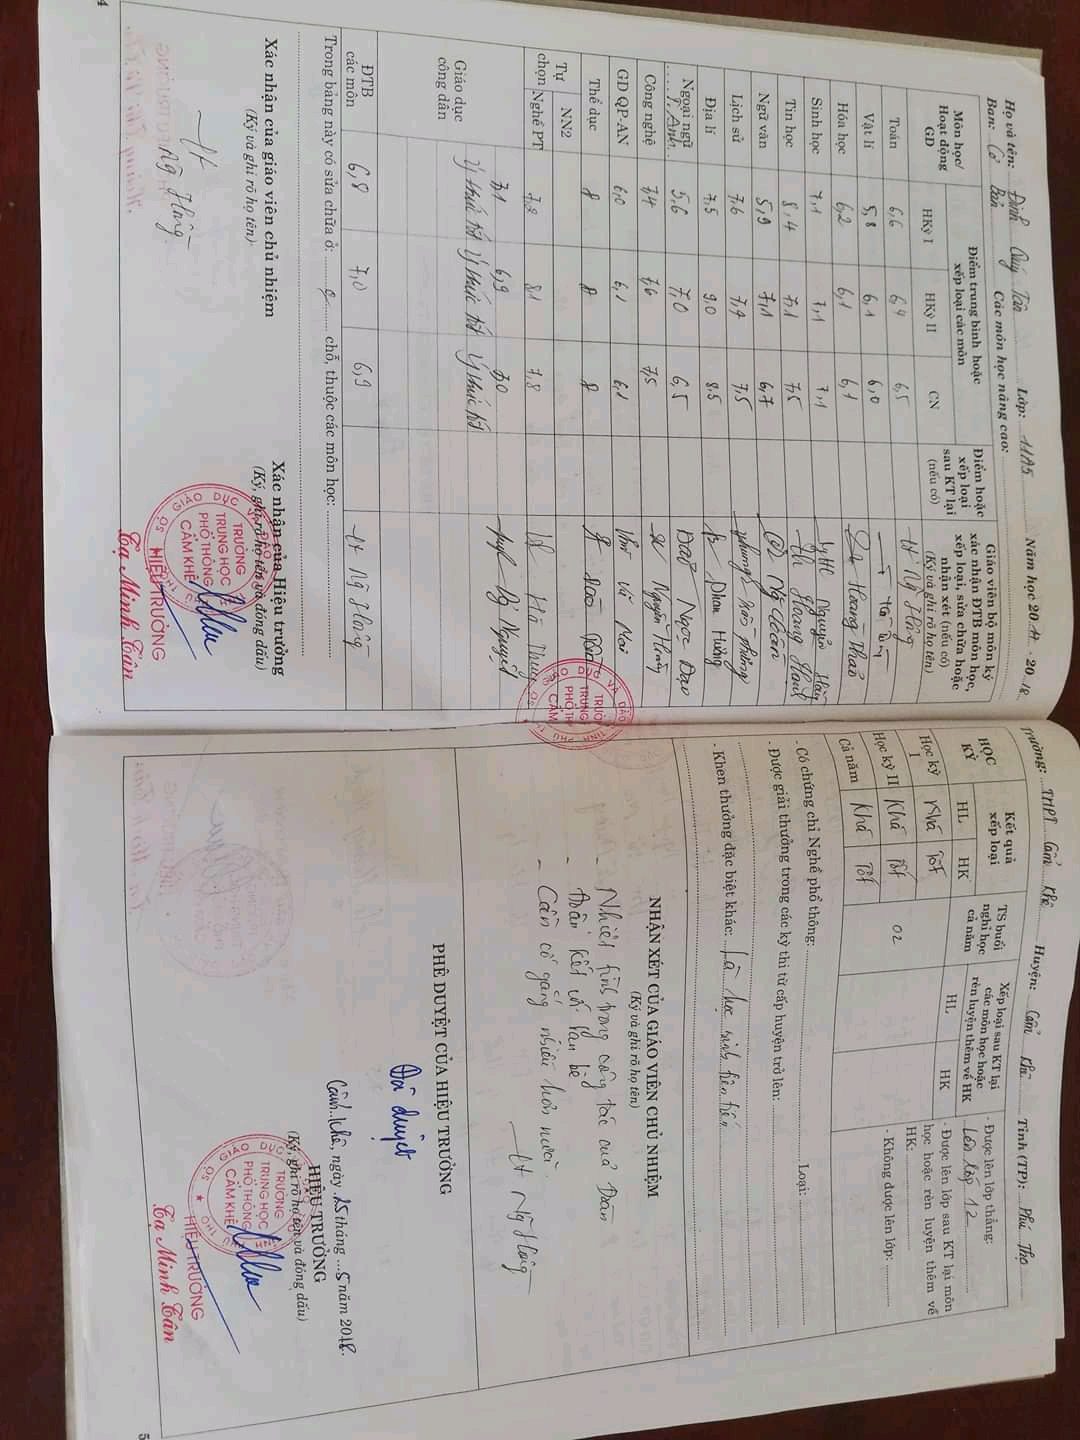 Họ và tên: Đinh Quý Tân Lớp: 11A5 Năm học 2017 - 2018
Ban: Cơ Bản Các môn học nâng cao:
Môn học/ Hoạt động GD
Điểm trung bình hoặc xếp loại các môn
HKỳ I HKỳ II CN
Điểm hoặc xếp loại sau KT lại (nếu có)
Giáo viên bộ môn ký xác nhận ĐTB môn học, xếp loại, sửa chữa hoặc nhận xét (nếu có)
(Ký và ghi rõ họ tên)
Toán 6,6 6,4 6,5 Ng Hồng
Vật lí 5,8 6,1 6,0
Hóa học 6,2 6,1 6,1 Hoàng Thảo
Sinh học 7,1 7,1 7,1 Nguyễn
Tin học 8,4 7,1 7,5 Hoàng
Ngữ văn 5,9 7,1 6,7
Lịch sử 7,6 7,4 7,5
Địa lí 7,5 9,0 8,5 Phan Hường
Ngoại ngữ T.Anh 5,6 7,0 6,5 Ngọc Đạo
Công nghệ 7,4 7,6 7,5 Nguyễn
GD QP-AN 6,0 6,1 6,1 Vũ Mai
Thể dục 8 8 8
Tự chọn
NN2
Nghề PT 7,2 8,1 7,8 Hà Thuý
Giáo dục công dân 7,1 6,9 7,0
Ý thức tốt Ý thức tốt Ý thức tốt
ĐTB các môn 6,8 7,0 6,9 Ng Hồng
Trong bảng này có sửa chữa ở: chỗ, thuộc các môn học:
Xác nhận của giáo viên chủ nhiệm
(Ký và ghi rõ họ tên)
Ng Hồng
Xác nhận của Hiệu trưởng
(Ký, ghi rõ họ tên và đóng dấu)
TRƯỜNG
TRUNG HỌC
PHỔ THÔNG
CẨM KHÊ
HIỆU TRƯỞNG
Tạ Minh Tân
4
Trường: THPT Cẩm Khê Huyện: Cẩm Khê Tỉnh (TP): Phú Thọ
HỌC KỲ
Kết quả xếp loại
HL HK
TS buổi nghỉ học cả năm
Xếp loại sau KT lại các môn học hoặc rèn luyện thêm về HK
HL HK
- Được lên lớp thẳng:
Lên lớp 12
- Được lên lớp sau KT lại môn học hoặc rèn luyện thêm về HK:
- Không được lên lớp:
Học kỳ I Khá Tốt
Học kỳ II Khá Tốt 02
Cả năm Khá Tốt
- Có chứng chỉ Nghề phổ thông: Loại:
- Được giải thưởng trong các kỳ thi từ cấp huyện trở lên:
- Khen thưởng đặc biệt khác: Là học sinh tiên tiến
NHẬN XÉT CỦA GIÁO VIÊN CHỦ NHIỆM
(Ký và ghi rõ họ tên)
- Nhiệt tình trong công tác của Đoàn
- Đoàn kết với bạn bè
- Cần cố gắng nhiều hơn nữa
Ng Hồng
PHÊ DUYỆT CỦA HIỆU TRƯỞNG
Đã duyệt
Cẩm Khê, ngày 25 tháng 5 năm 2018
HIỆU TRƯỞNG
(Ký, ghi rõ họ tên và đóng dấu)
TRƯỜNG
TRUNG HỌC
PHỔ THÔNG
CẨM KHÊ
HIỆU TRƯỞNG
Tạ Minh Tân
5